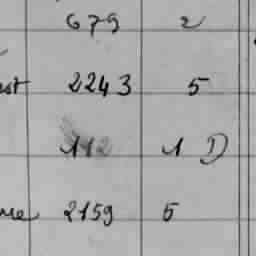 679 2
2243 5
112 1 D
2159 5